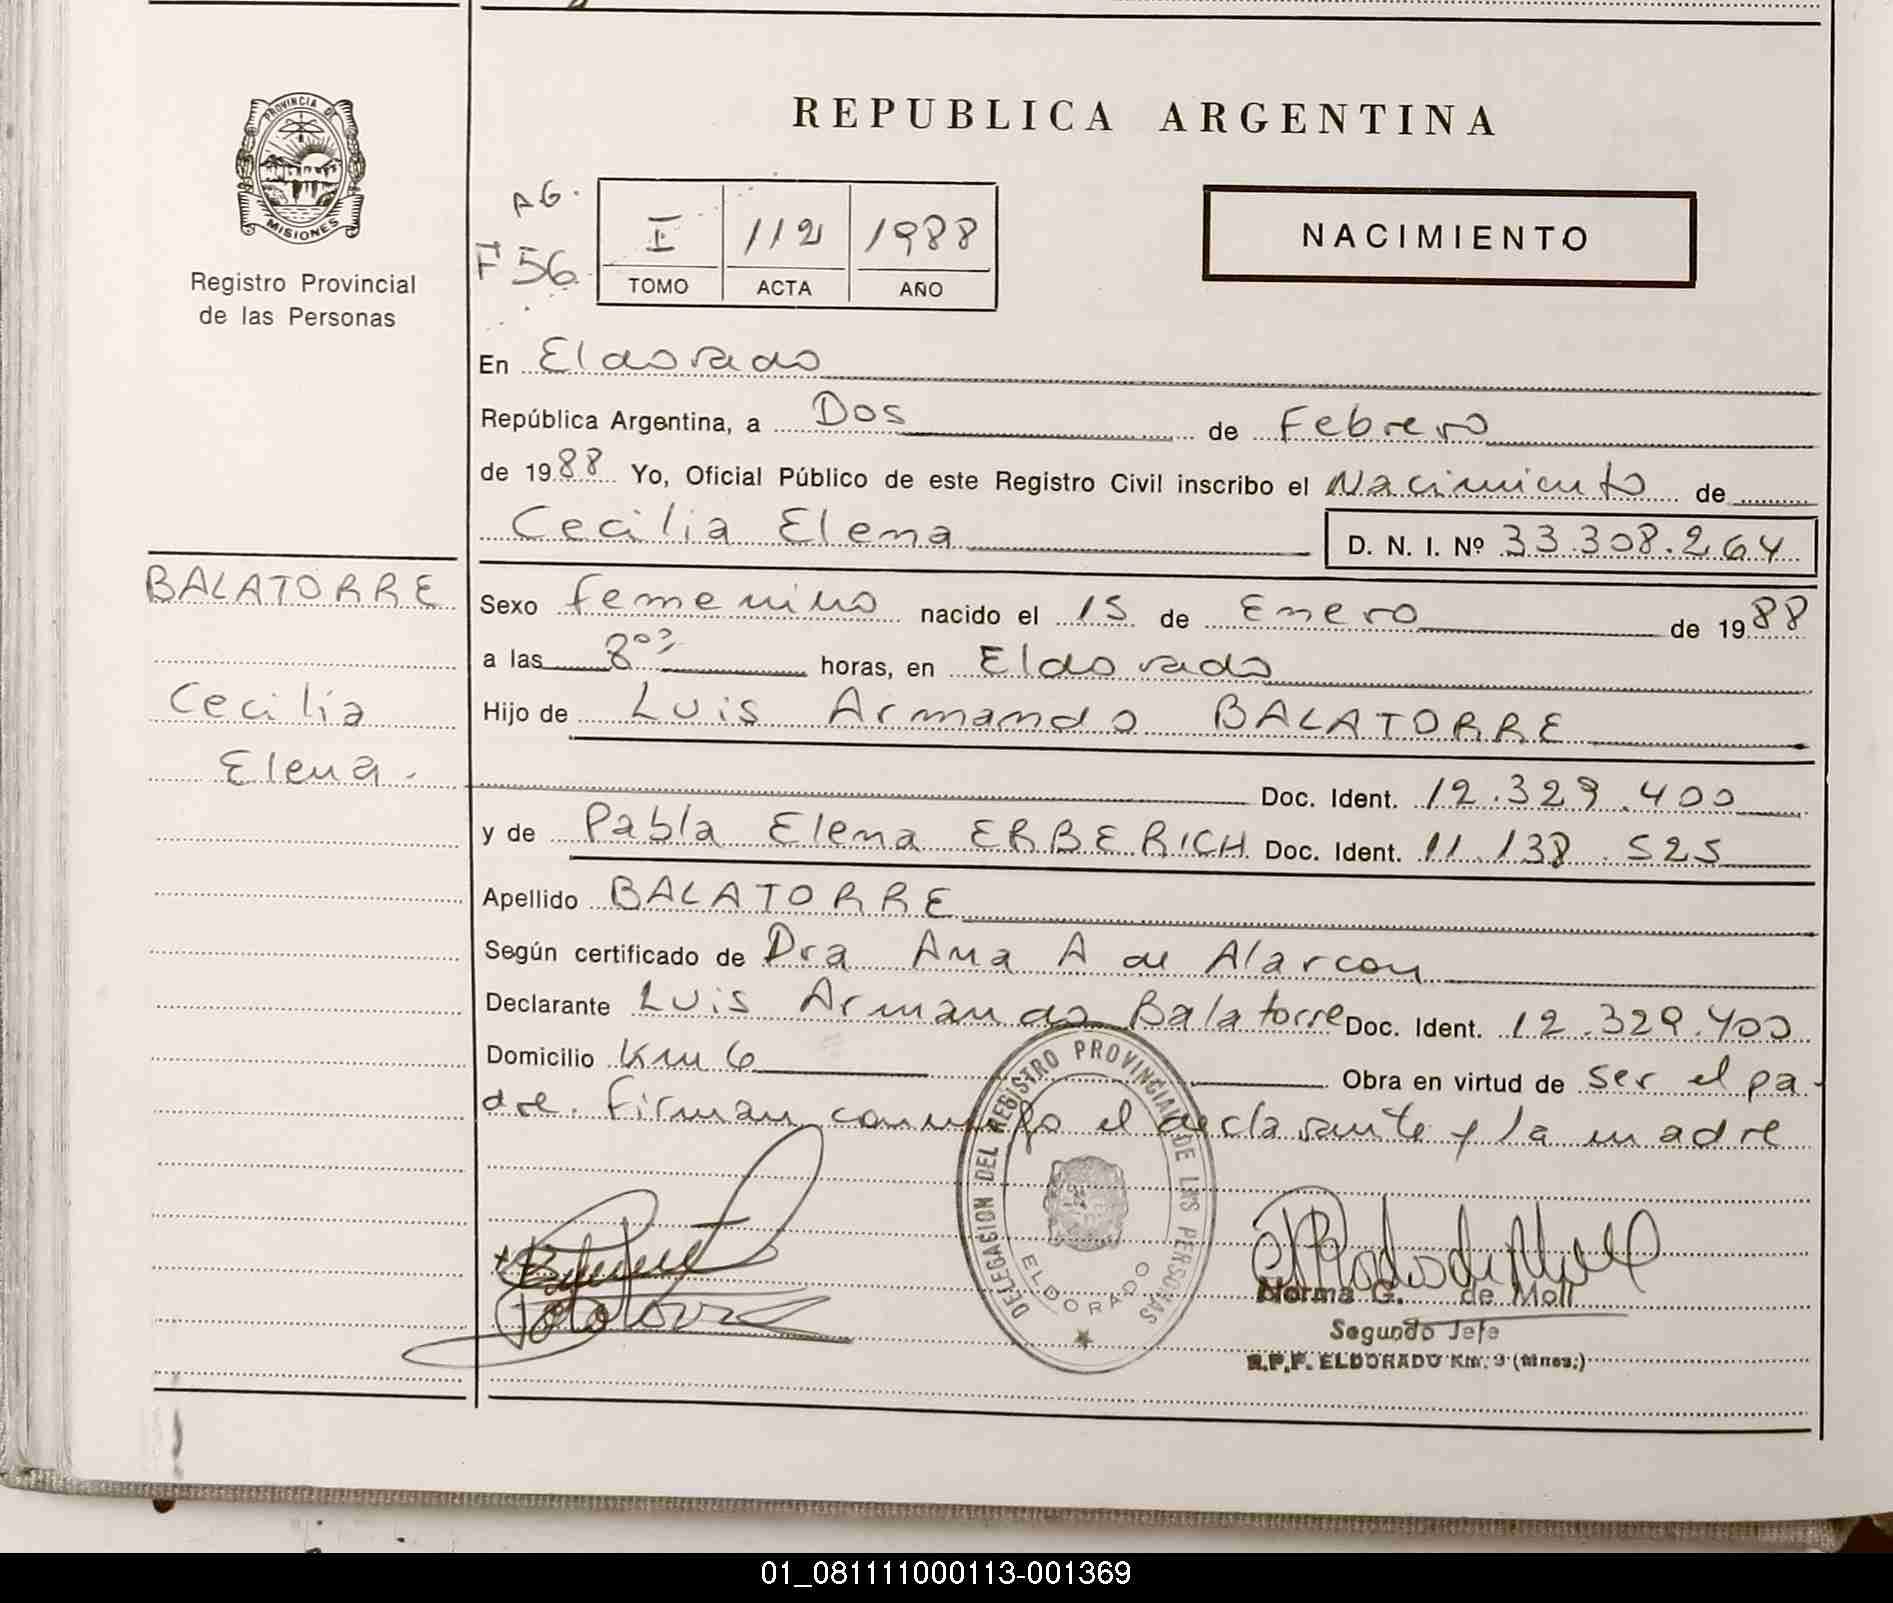 PROVINCIA DE
MISIONES
Registro Provincial
de las Personas
REPUBLICA ARGENTINA
AG.
F 56
I 112 1988
TOMO ACTA AÑO
NACIMIENTO
En Eldorado
República Argentina, a Dos de Febrero
de 1988 Yo, Oficial Público de este Registro Civil inscribo el Nacimiento de
Cecilia Elena D. N. I. Nº 33.308.264
BALATORRE
Cecilia
Elena.
Sexo femenino nacido el 15 de Enero de 1988
a las 8⁰⁰ horas, en Eldorado
Hijo de Luis Armando BALATORRE
Doc. Ident. 12.329.400
y de Pabla Elena ERBERICH Doc. Ident. 11.138.525
Apellido BALATORRE
Según certificado de Dra Ana A de Alarcon
Declarante Luis Armando Balatorre Doc. Ident. 12.329.400
Domicilio Km 6 Obra en virtud de ser el pa-
dre. Firman conmigo el declarante y la madre
DELEGACION DEL REGISTRO PROVINCIAL DE LAS PERSONAS
ELDORADO
Norma G. de Moll
Segundo Jefe
R.P.P. ELDORADO Km. 9 (Mnes.)
01_081111000113-001369